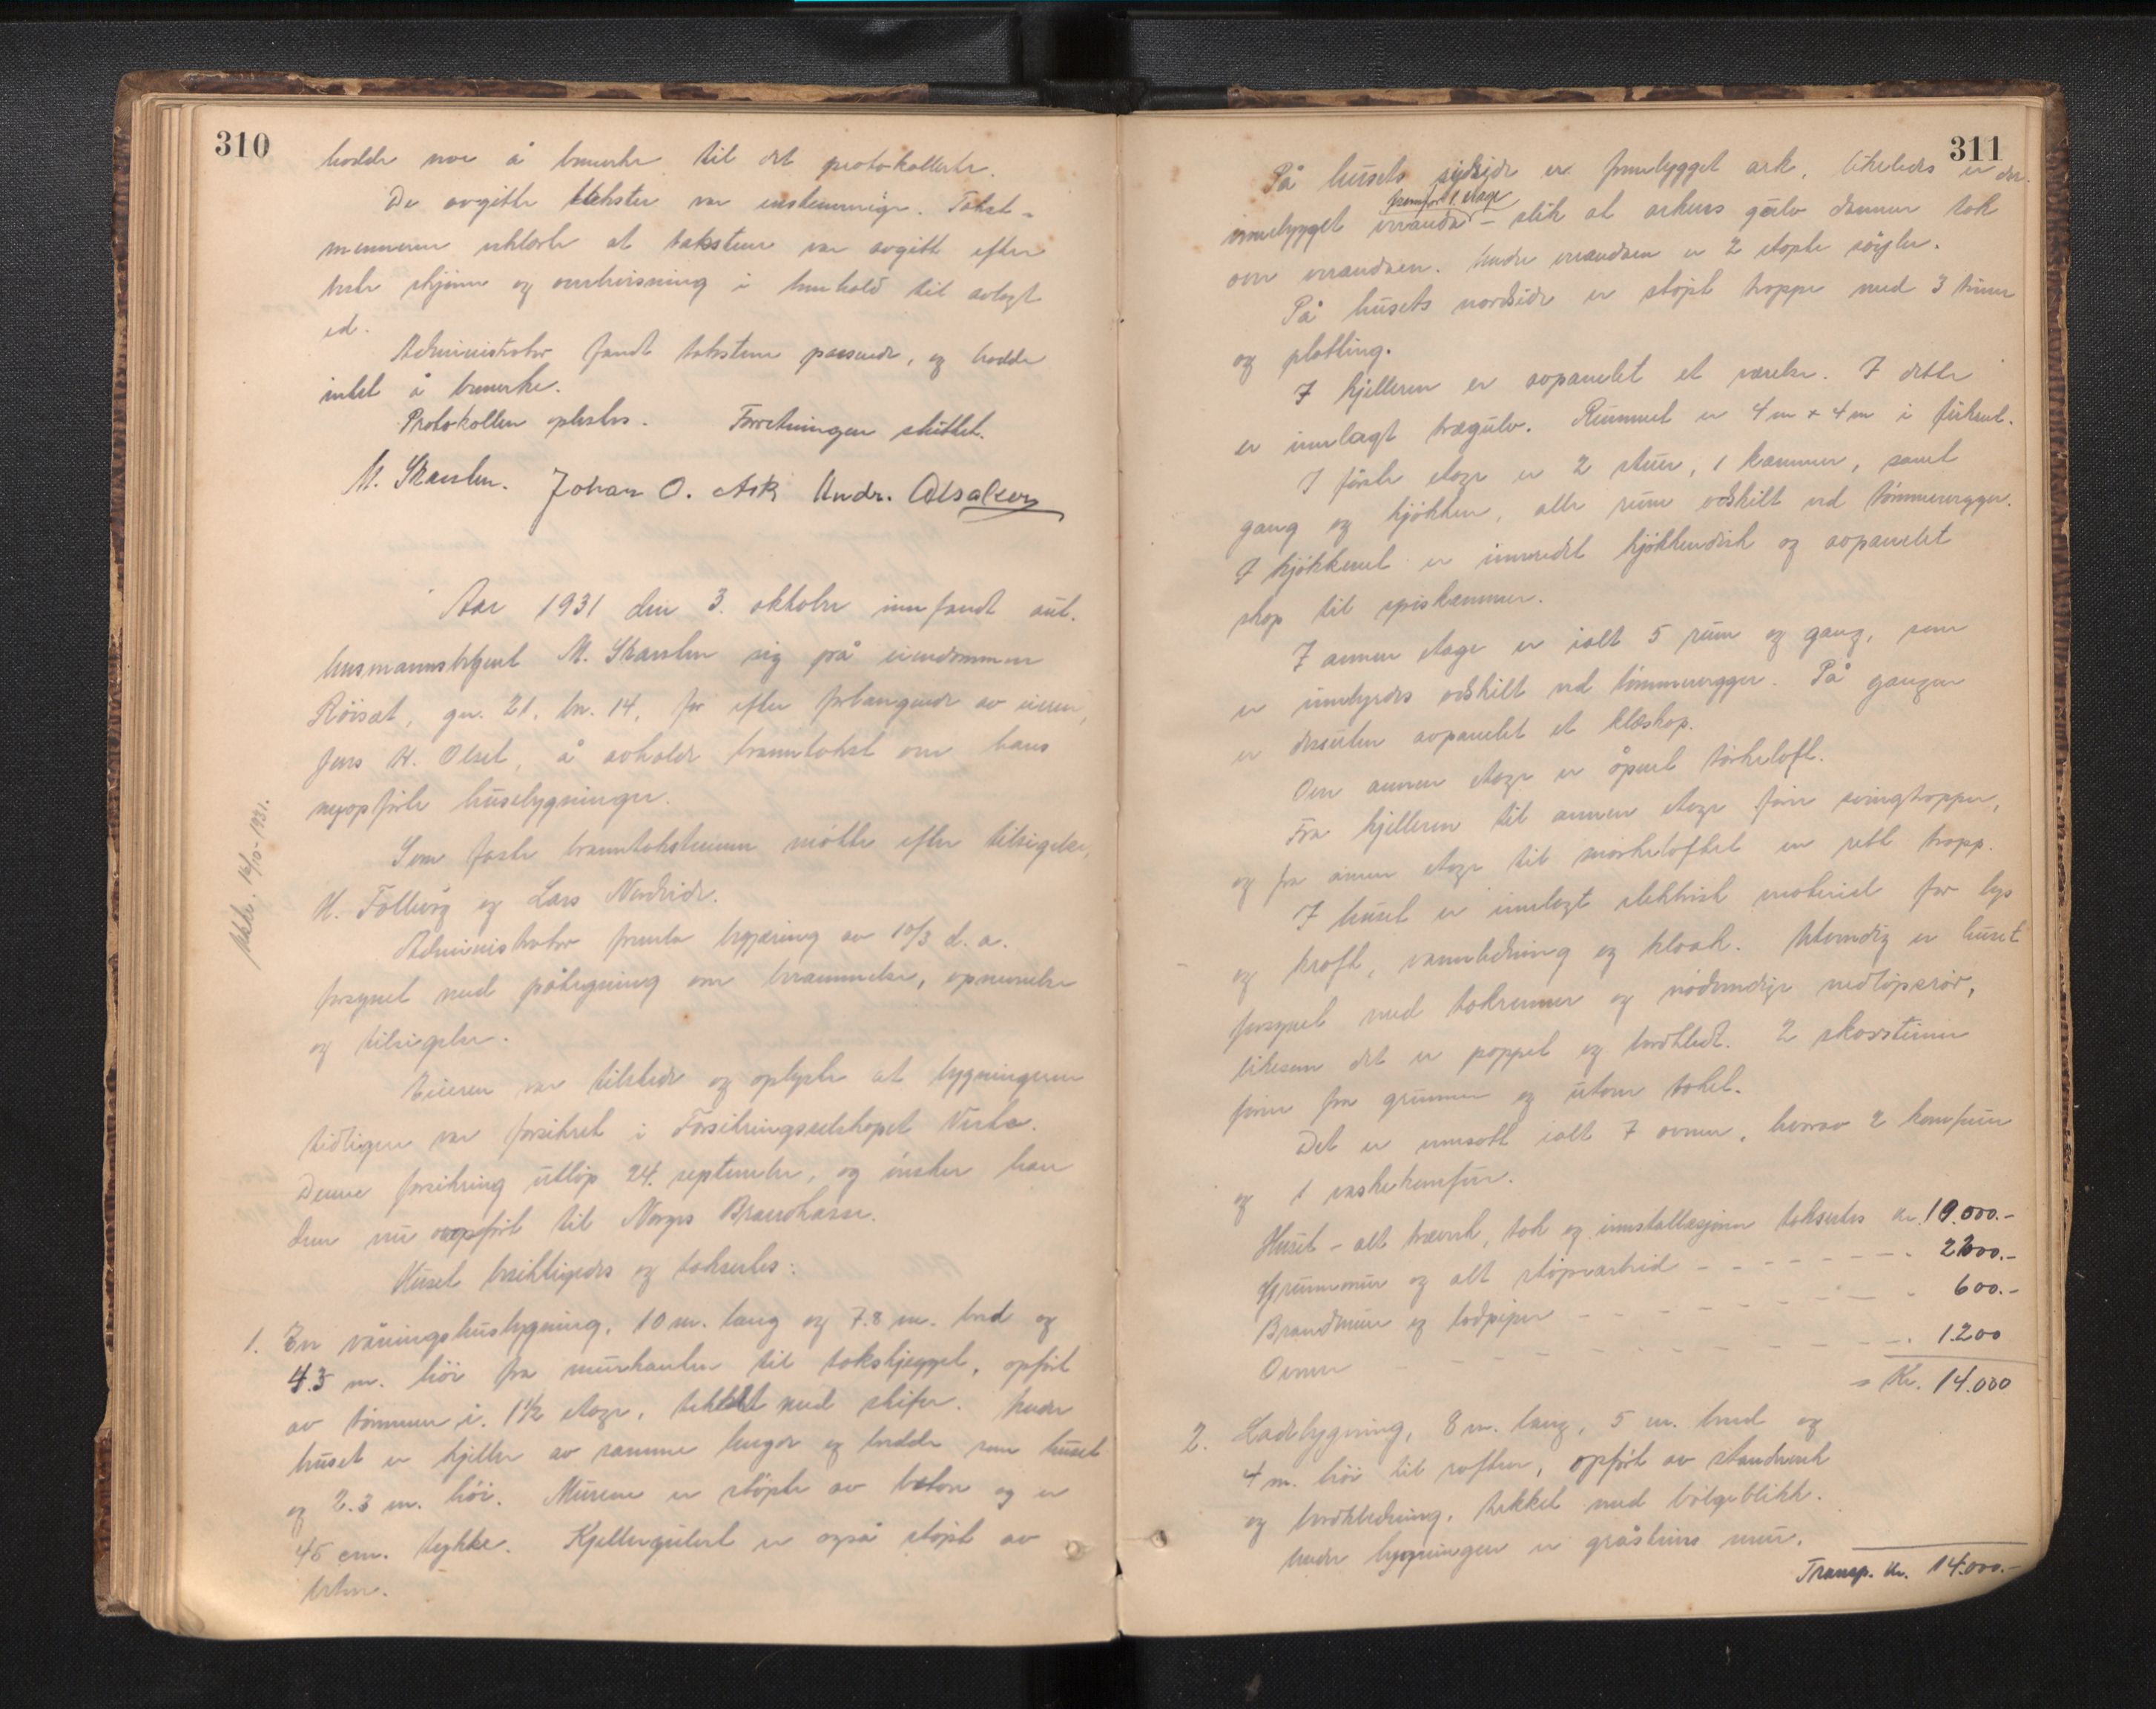 310
hadde noe å bemerke til det protokollerte.
De avgitte takster var enstemmige. Takst-
mennene erklærte at takstene var avgitt efter
beste skjønn og overbevisning i henhold til avlagt
ed.
Administrator fandt takstene passende, og hadde
intet å bemerke.
Protokollen oplestes. Forretningen sluttet.
M. Skarslen. Johan O. Ask Andr.
Aar 1931 den 3. oktober innfandt aut.
lensmannsbetjent M. Skarslen sig på eiendommen
Röisat, gn. 21. bn. 14, for efter forlangende av eieren,
Jens H. Olset, å avholde branntakst over hans
nyopførte husebygninger.
Som faste branntakstmenn møtte efter tilsigelse,
H. Follung og Lars Nordeide.
Administrator fremla begjæring av 10/3 d. a.
forsynet med påtegning om berammelse, opnevnelse
og tilsigelse.
Eieren var tilstede og oplyste at bygningene
tidligere var forsikret i Forsikringsselskapet Vesta.
Denne forsikring utløp 24. september, og ønsker han
dem nu overført til Norges Brandkasse.
Huset besiktigedes og takseres:
1. En våningshusbygning, 10 m. lang og 7.8 m. bred og
4.5 m. høi fra murkanten til takskjegget, opført
av tømmer i 1½ etage, tekket med skifer. Under
huset er kjeller av samme lengde og bredde som huset
og 2.3 m. høi. Murene er støpte av beton og er
45 cm. tykke. Kjellergulvet er også støpt av
beton.
Utskr. 14/10-1931.
311
På husets sydside er frembygget ark, likeledes er der
fremfor 1. etage
innebygget veranda - slik at arkens gulv danner tak
over verandaen. Under verandaen er 2 støpte søyler.
På husets nordside er støpt trappe med 3 trinn
og platting.
I kjelleren er avpanelet et værelse. I dette
er innlagt trægulv. Rummet er 4 m x 4 m i firkant.
I første etage er 2 stuer, 1 kammer, samt
gang og kjøkken, alle rum adskilt ved tømmervegger.
I kjøkkenet er innredet kjøkkendisk og avpanelet
skap til spiskammer.
I annen etage er ialt 5 rum og gang, som
er innbyrdes adskilt ved tømmervegger. På gangen
er dessuten avpanelet et klæskap.
Over annen etage er åpent tørkeloft.
Fra kjelleren til annen etage fører svingtrapper,
og fra annen etage til mørkeloftet en rett trapp.
I huset er innlagt elektrisk materiel for lys
og kraft, vannledning og kloak. Utvendig er huset
forsynet med takrenner og nødvendige nedløpsrør,
likesom det er pappet og bordkledt. 2 skorsteiner
fører fra grunnen og utover taket.
Det er innsatt ialt 7 ovner, hvorav 2 komfurer
og 1 vaskekomfur.
Huset - alt træverk, tak og innstallasjoner takseres kr. 10.000.-
Grunnmur og alt støpearbeid - - - - - - 2200.-
Brandmur og lodpiper - - - - - - - 600.-
Ovner - - - - - - - - 1.200
= Kr. 14.000
2. Ladebygning, 8 m. lang, 5 m. bred og
4 m. høi til raften, opført av standverk
og bordkledning, tekket med bølgeblikk.
Under bygningen er gråsteins mur.
Transp. kr. 14.000.-